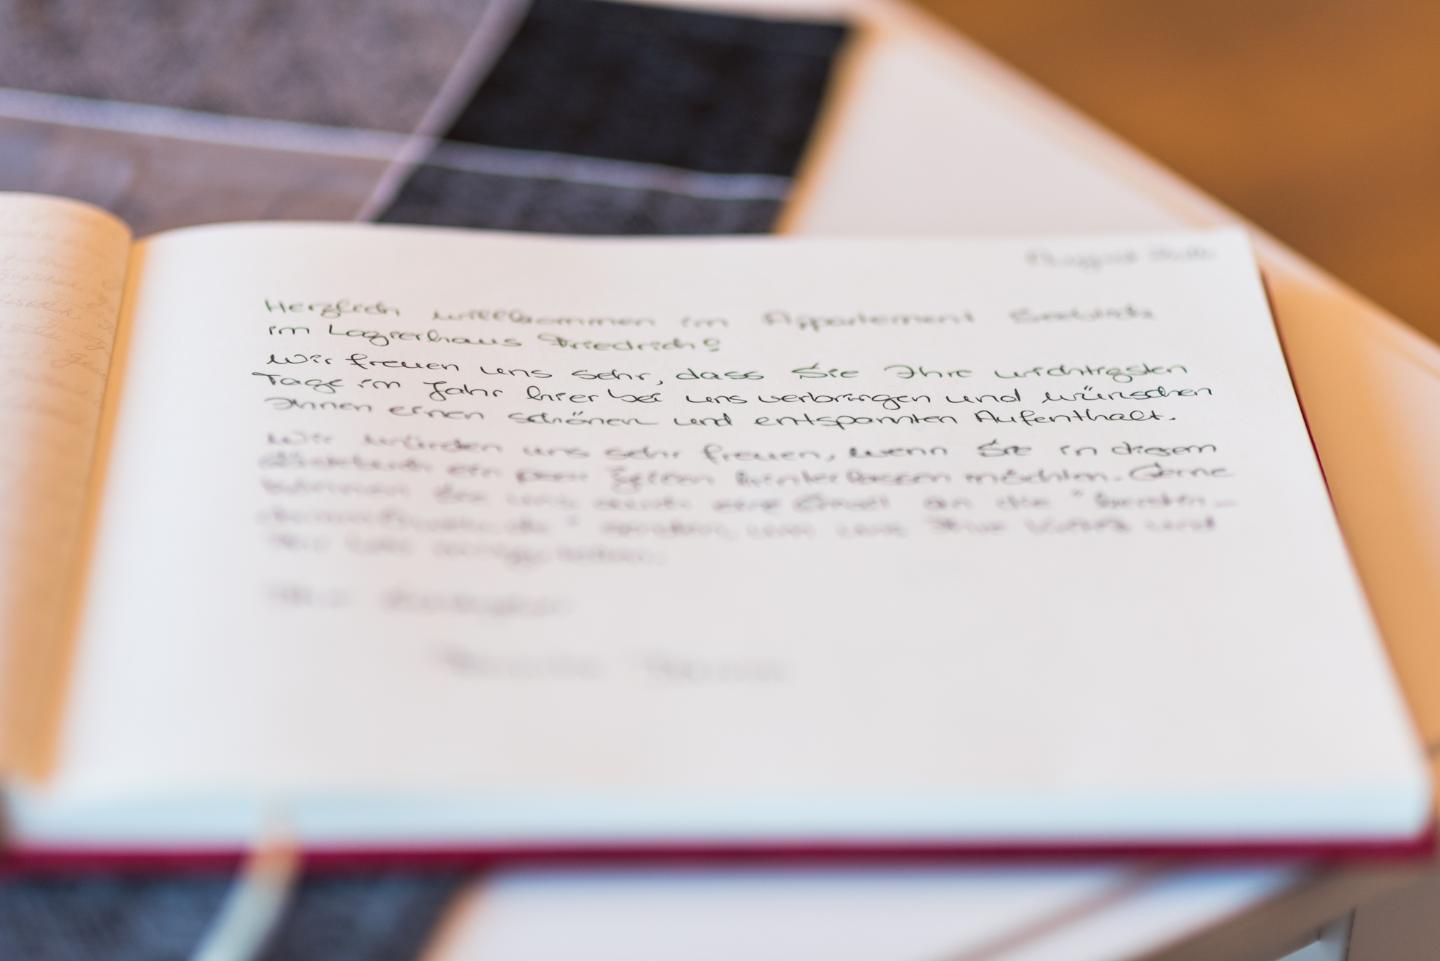 August
Herzlich willkommen im Appartement Seeblick
im Logierhaus Friedrich!
Wir freuen uns sehr, dass Sie Ihre wichtigsten
Tage im Jahr hier bei uns verbringen und wünschen
Ihnen einen schönen und entspannten Aufenthalt.
Wir würden uns sehr freuen, wenn Sie in diesem
Gästebuch ein paar Zeilen hinterlassen möchten. Gerne
können Sie uns auch eine Email an die
senden, um uns Ihre Kritik und
Ihr Lob mitzuteilen.